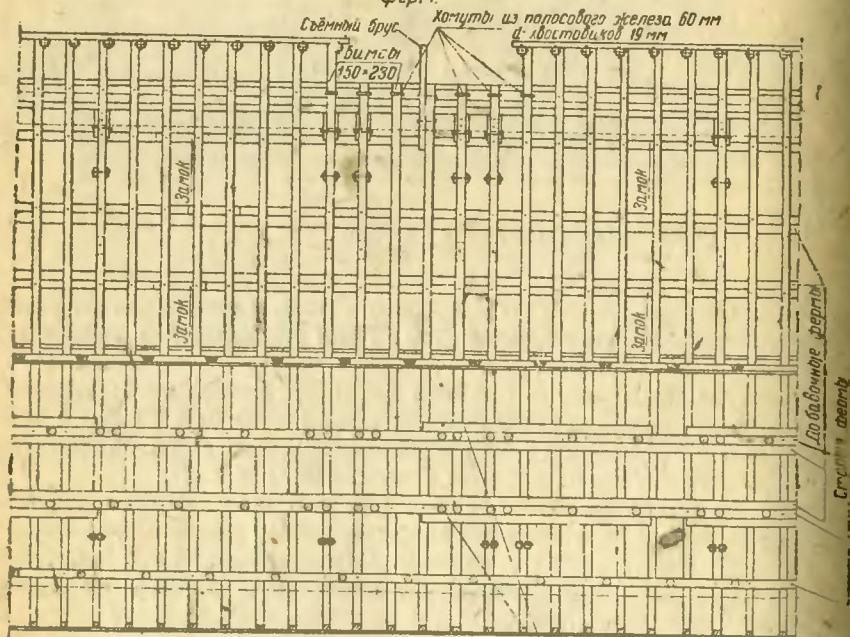 ферм.
Съёмный брус
Хомуты из полосового железа 60 мм
d-хвостовиков 19 мм
Бимсы
150×230
Замок
Замок
Замок
Замок
Добавочные фермы
фермы